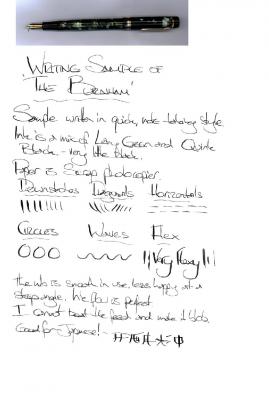 WRITING SAMPLE OF
'THE BURNHAM'
Sample written in quick, note-taking style
Ink is a mix of Lamy Green and Quink
Black - very little black.
Paper is Scrap photocopier.
Downstrokes Diagonals Horizontals
CIRCLES WAVES FLEX
Very Flexy
The nib is smooth in use, less happy at a
steep angle. Ink flow is perfect
I cannot beat the feed and make it blob.
Good for Japanese! -